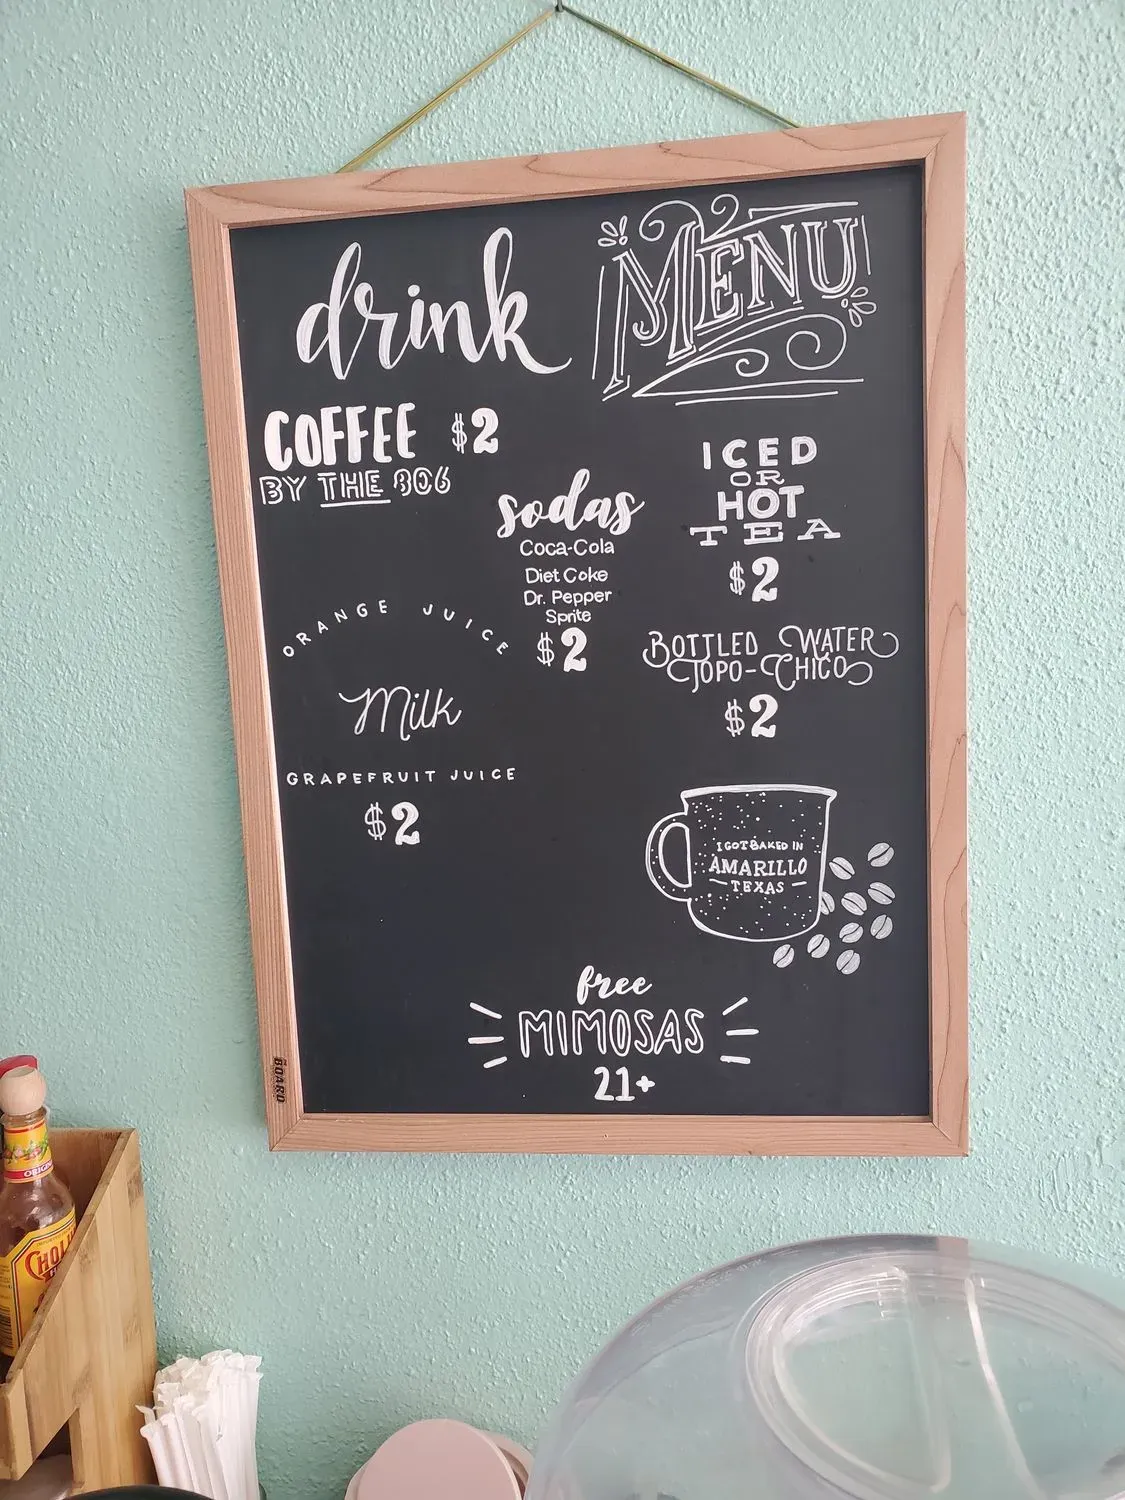 drink
MENU
COFFEE $2
BY THE 806
sodas
Coca-Cola
Diet Coke
Dr. Pepper
Sprite
$2
ICED
OR
HOT
TEA
$2
ORANGE JUICE
Milk
GRAPEFRUIT JUICE
$2
BOTTLED WATER
TOPO-CHICO
$2
I GOT BAKED IN
AMARILLO
TEXAS
free
MIMOSAS
21+
BOARD